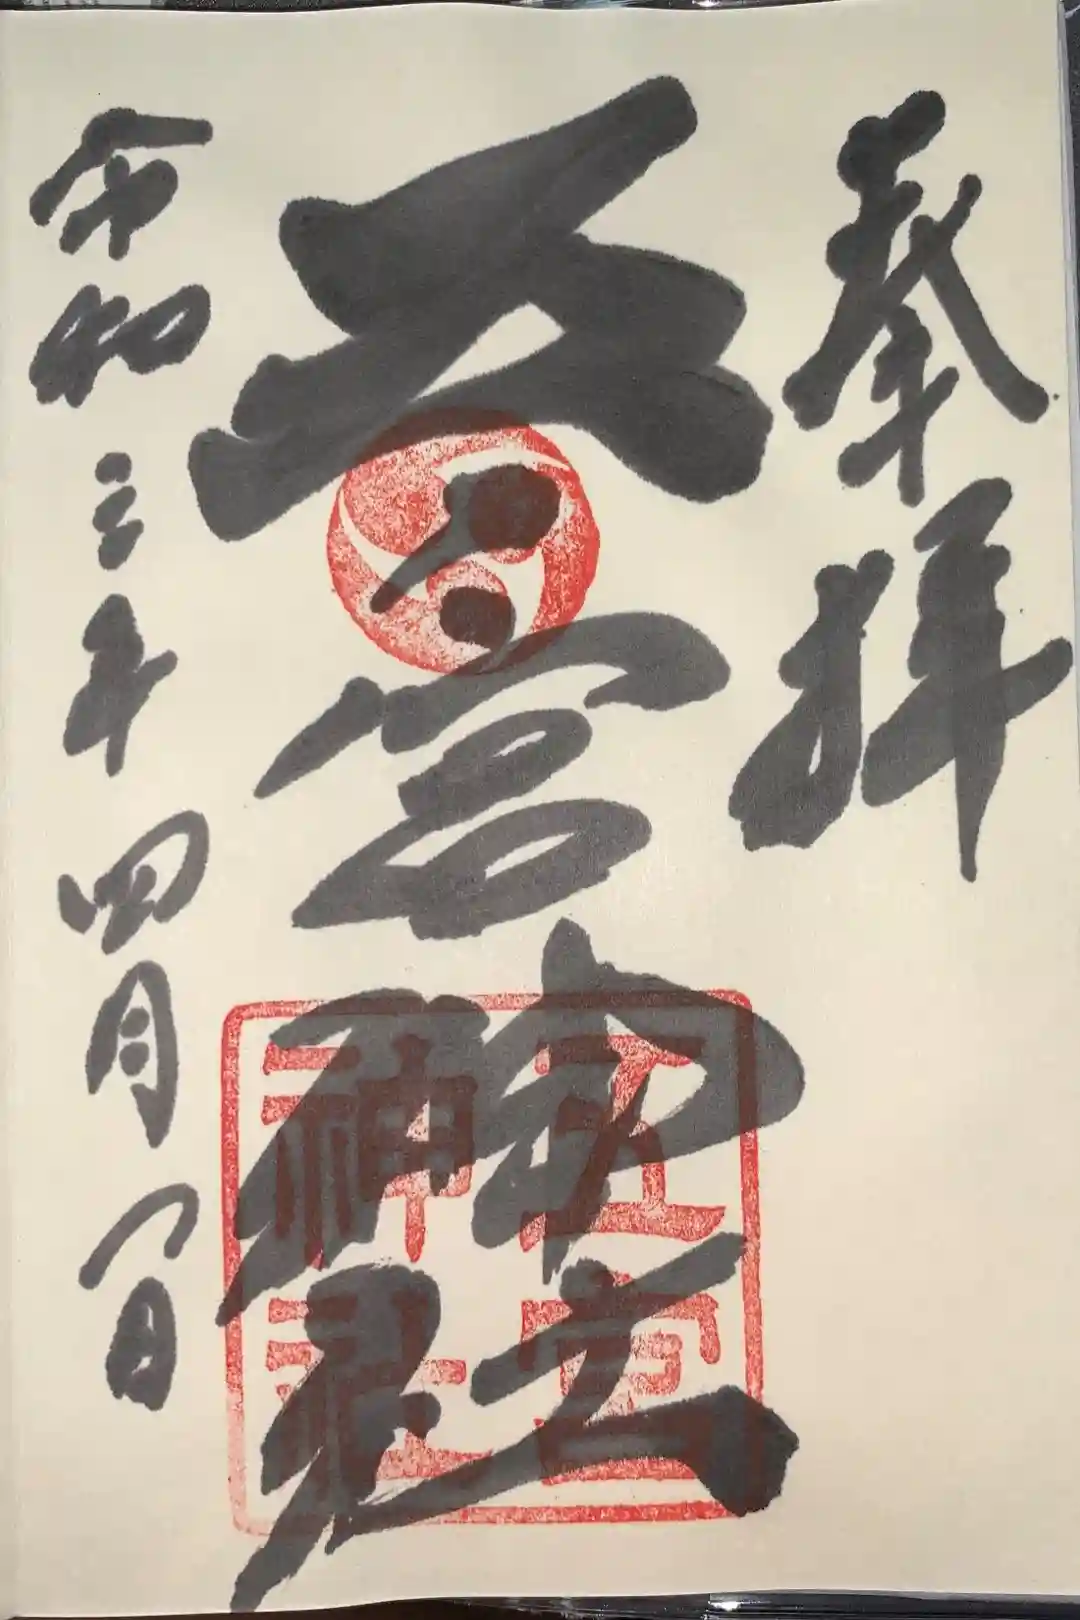 奉拝
五宮神社
五宮神社
令和三年四月一日